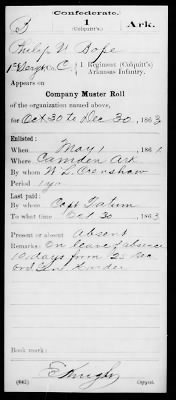 Confederate.
B 1 Ark.
(Colquitt's)
Philip N. Pope
1st Sergt, Co. C, 1 Regiment (Colquitt's)
Arkansas Infantry.
Appears on
Company Muster Roll
of the organization named above,
for Oct 30 to Dec 30, 1863
Enlisted:
When May 1, 1861
Where Camden Ark
By whom W. L. Crenshaw
Period 1 yr
Last paid:
By whom Capt Tatum
To what time Oct 30, 1863
Present or absent Absent
Remarks: On leave of absence
days from 25 Dec
Book mark:
Copyist.